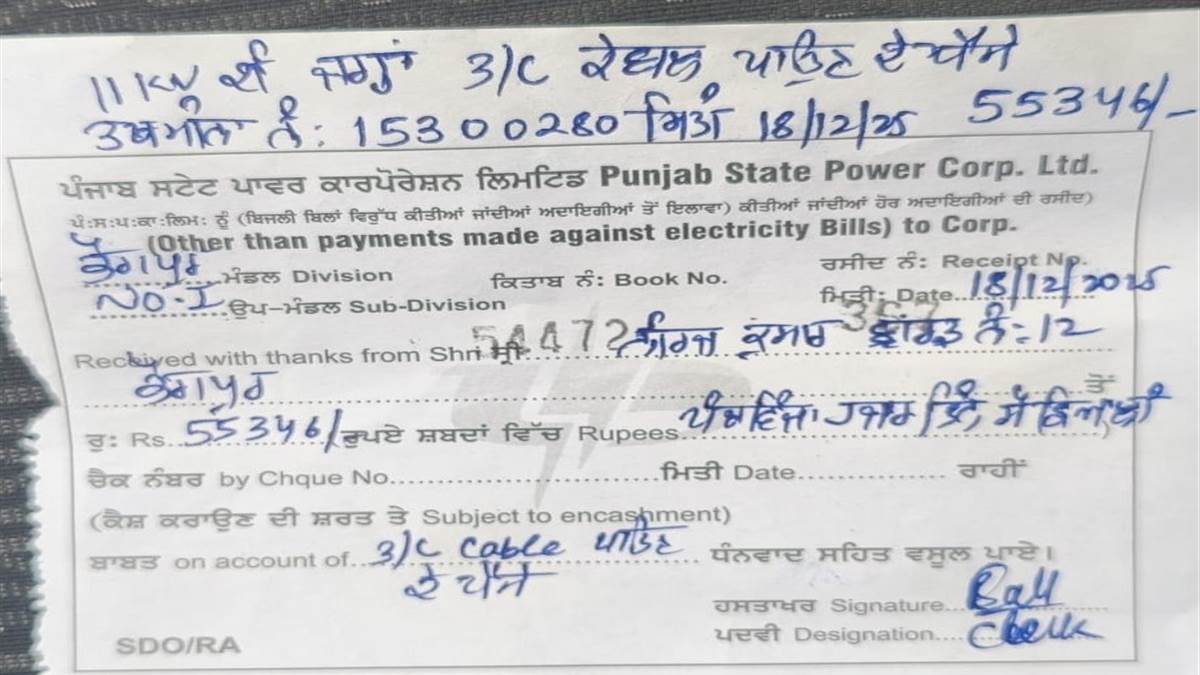 11KV ਦੀ ਜਗ੍ਹਾਂ 3/C ਕੇਬਲ ਪਾਉਣ ਦੇ ਪੈਸੇ
ਤਖਮੀਨਾ ਨੰ: 15300280 ਮਿਤੀ 18/12/25 55346/-
ਪੰਜਾਬ ਸਟੇਟ ਪਾਵਰ ਕਾਰਪੋਰੇਸ਼ਨ ਲਿਮਟਿਡ Punjab State Power Corp. Ltd.
ਪੰ:ਸ:ਪ:ਕਾ:ਲਿਮ: ਨੂੰ (ਬਿਜਲੀ ਬਿਲਾਂ ਵਿਰੁੱਧ ਕੀਤੀਆਂ ਜਾਂਦੀਆਂ ਅਦਾਇਗੀਆਂ ਤੋਂ ਇਲਾਵਾ) ਕੀਤੀਆਂ ਜਾਂਦੀਆਂ ਹੋਰ ਅਦਾਇਗੀਆਂ ਦੀ ਰਸੀਦ)
(Other than payments made against electricity Bills) to Corp.
ਮੰਡਲ Division ਕਿਤਾਬ ਨੰ: Book No. ਰਸੀਦ ਨੰ: Receipt No.
NO-I ਉਪ-ਮੰਡਲ Sub-Division ਮਿਤੀ: Date 18/12/2025
Received with thanks from Shri ਸ੍ਰੀ 54472 357 ਕੁਮਾਰ ਵਾਰਡ ਨੰ:12
ਤੋਂ
ਰੁ: Rs. 55346/ ਰੁਪਏ ਸ਼ਬਦਾਂ ਵਿੱਚ Rupees ਪੰਚਵਿੰਜਾ ਹਜਾਰ ਤਿੰਨ ਸੌ ਛਿਆਲੀ
ਚੈਕ ਨੰਬਰ by Chque No. ਮਿਤੀ Date ਰਾਹੀਂ
(ਕੈਸ਼ ਕਰਾਉਣ ਦੀ ਸ਼ਰਤ ਤੇ Subject to encashment)
ਬਾਬਤ on account of 3/C Cable ਪਾਉਣ ਧੰਨਵਾਦ ਸਹਿਤ ਵਸੂਲ ਪਾਏ।
ਦੇ ਪੈਸੇ
ਹਸਤਾਖਰ Signature
ਪਦਵੀ Designation Clerk
SDO/RA